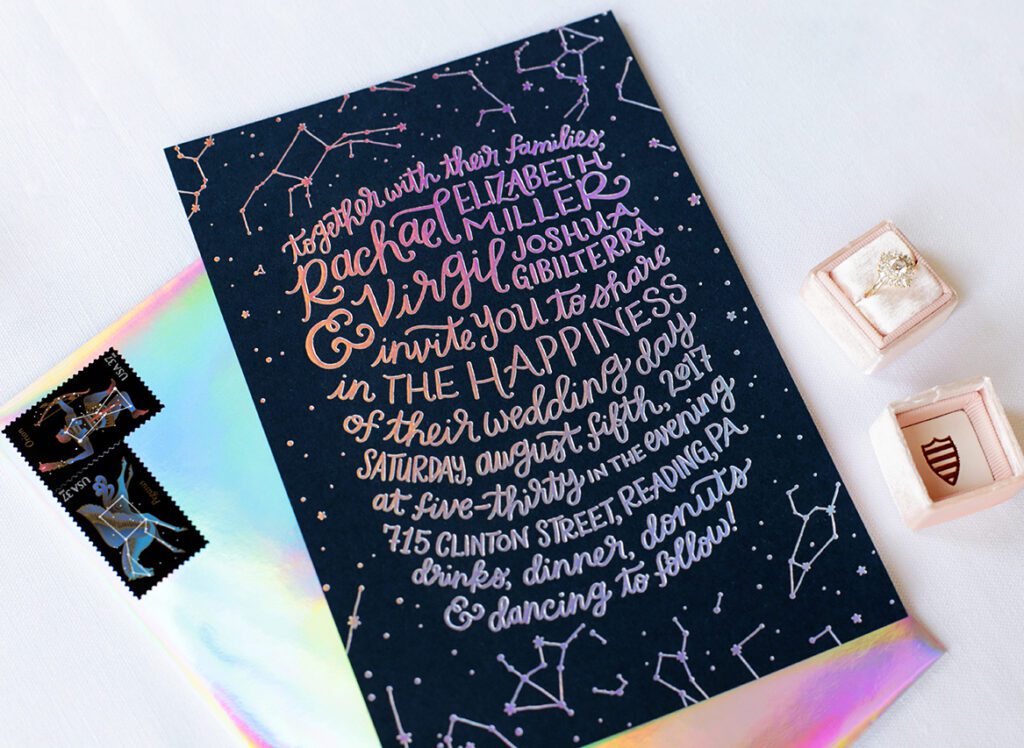 together with their families,
Rachael ELIZABETH MILLER
& Virgil JOSHUA GIBILTERRA
invite YOU to share
in THE HAPPINESS
of their wedding day
SATURDAY, august fifth, 2017
at five-thirty IN THE evening
715 CLINTON STREET, READING, PA
drinks, dinner, donuts
& dancing to follow!
USA 37
Orion
USA 37
Pegasus